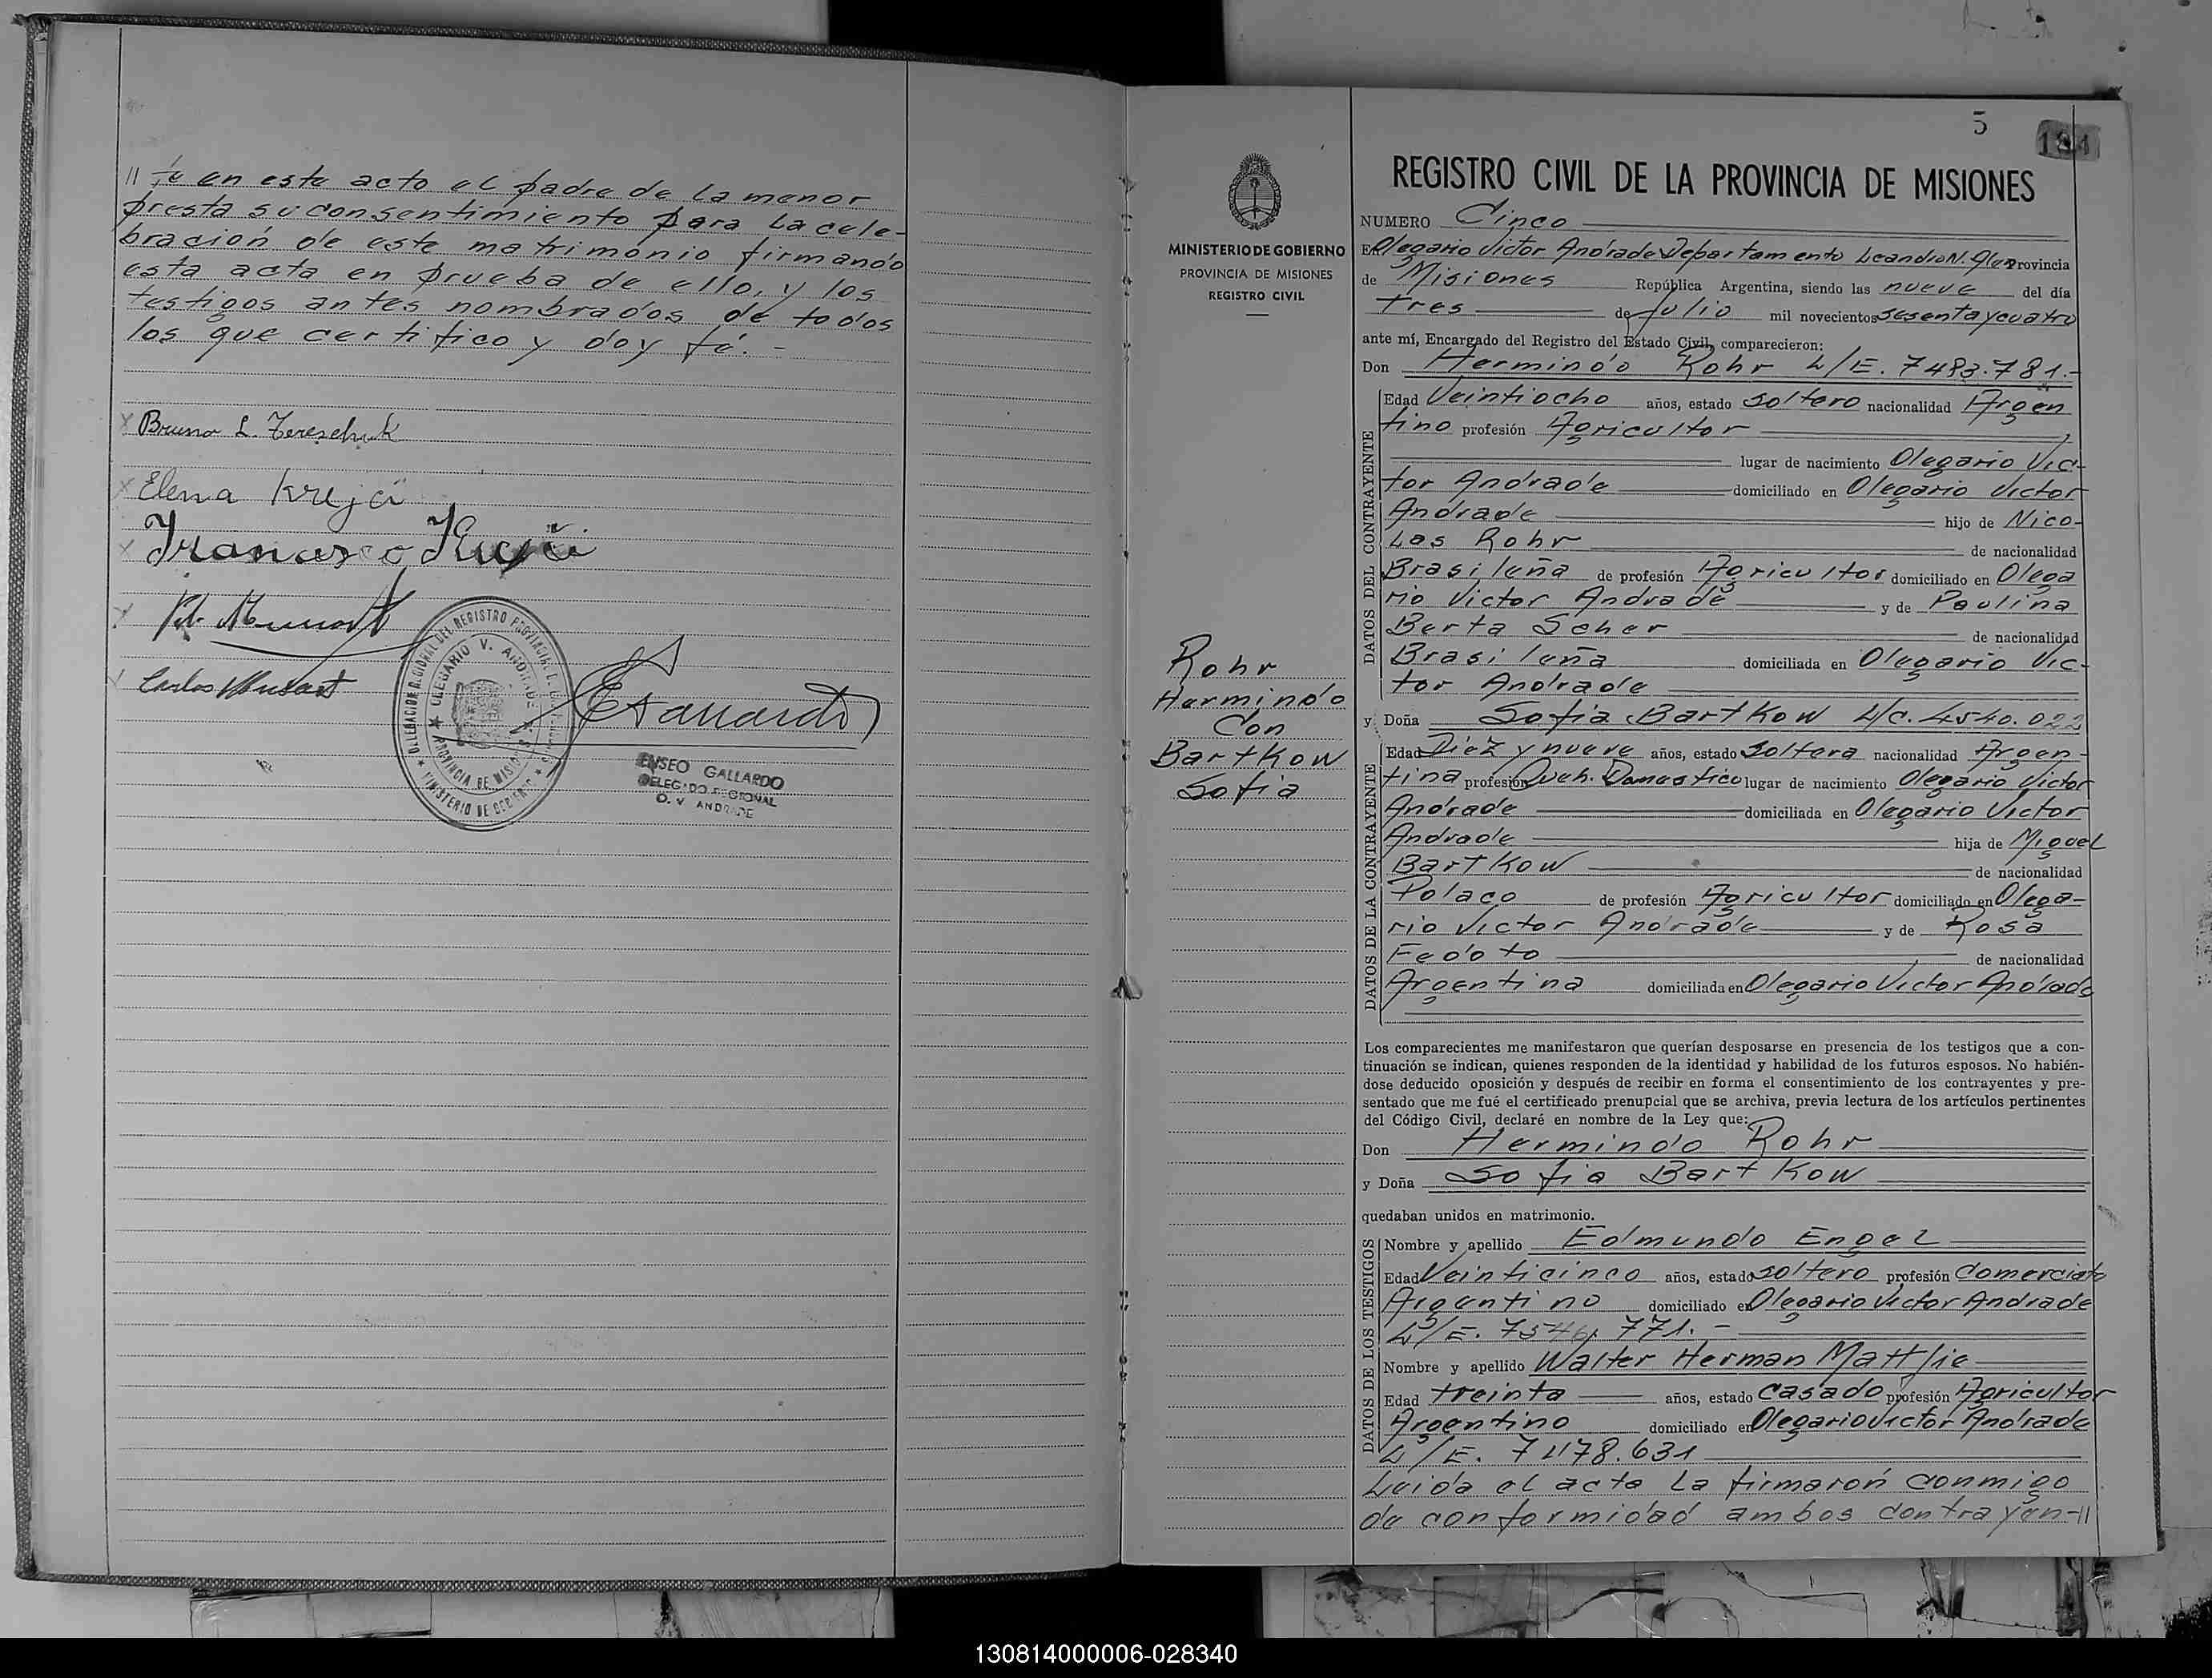 // te en este acto el padre de la menor
presta su consentimiento para la cele-
bración de este matrimonio firmando
esta acta en prueba de ello, y los
testigos antes nombrados de todos
los que certifico y doy fé. -
Bruno L. Tereschuk
Elena Krejci
Francisco Krejci
Carlos
DELEGACION REGIONAL DEL REGISTRO PROVINCIAL
OLEGARIO V. ANDRADE
PROVINCIA DE MISIONES
MINISTERIO DE GOBIERNO
ENSEO GALLARDO
DELEGADO REGIONAL
O. V. ANDRADE
5
194
MINISTERIO DE GOBIERNO
PROVINCIA DE MISIONES
REGISTRO CIVIL
Rohr
Hermindo
Con
Bartkow
Sofia
REGISTRO CIVIL DE LA PROVINCIA DE MISIONES
NUMERO Cinco
En Olegario Victor Andrade Departamento Leandro N. Alem Provincia
de Misiones República Argentina, siendo las nueve del día
tres de julio mil novecientos sesenta y cuatro
ante mí, Encargado del Registro del Estado Civil, comparecieron:
Don Hermindo Rohr L/E. 7483.781.-
DATOS DEL CONTRAYENTE
Edad Veintiocho años, estado soltero nacionalidad Argen
tino profesión Agricultor
lugar de nacimiento Olegario Vic-
tor Andrade domiciliado en Olegario Victor
Andrade hijo de Nico-
las Rohr de nacionalidad
Brasileña de profesión Agricultor domiciliado en Olega
rio Victor Andrade y de Paulina
Berta Scher de nacionalidad
Brasileña domiciliada en Olegario Vic-
tor Andrade
y Doña Sofia Bartkow L/C. 4540.022
DATOS DE LA CONTRAYENTE
Edad Diez y nueve años, estado soltera nacionalidad Argen-
tina profesión Queh. Domestico lugar de nacimiento Olegario Victor
Andrade domiciliada en Olegario Victor
Andrade hija de Miguel
Bartkow de nacionalidad
Polaco de profesión Agricultor domiciliado en Olega-
rio Victor Andrade y de Rosa
Fedoto de nacionalidad
Argentina domiciliada en Olegario Victor Andrade
Los comparecientes me manifestaron que querían desposarse en presencia de los testigos que a con-
tinuación se indican, quienes responden de la identidad y habilidad de los futuros esposos. No habién-
dose deducido oposición y después de recibir en forma el consentimiento de los contrayentes y pre-
sentado que me fué el certificado prenupcial que se archiva, previa lectura de los artículos pertinentes
del Código Civil, declaré en nombre de la Ley que:
Don Hermindo Rohr
y Doña Sofia Bartkow
quedaban unidos en matrimonio.
DATOS DE LOS TESTIGOS
Nombre y apellido Edmundo Engel
Edad Veinticinco años, estado soltero profesión Comerciate
Argentino domiciliado en Olegario Victor Andrade
L/E. 7546.771. -
Nombre y apellido Walter Herman Mattjie
Edad treinta años, estado Casado profesión Agricultor
Argentino domiciliado en Olegario Victor Andrade
L/E. 7478.631
Leida el acta la firmarón conmigo
de conformidad ambos contrayen-//
130814000006-028340